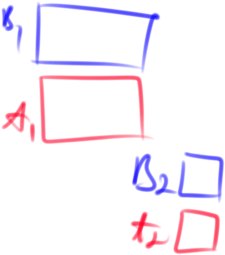 B1
A1
B2
A2